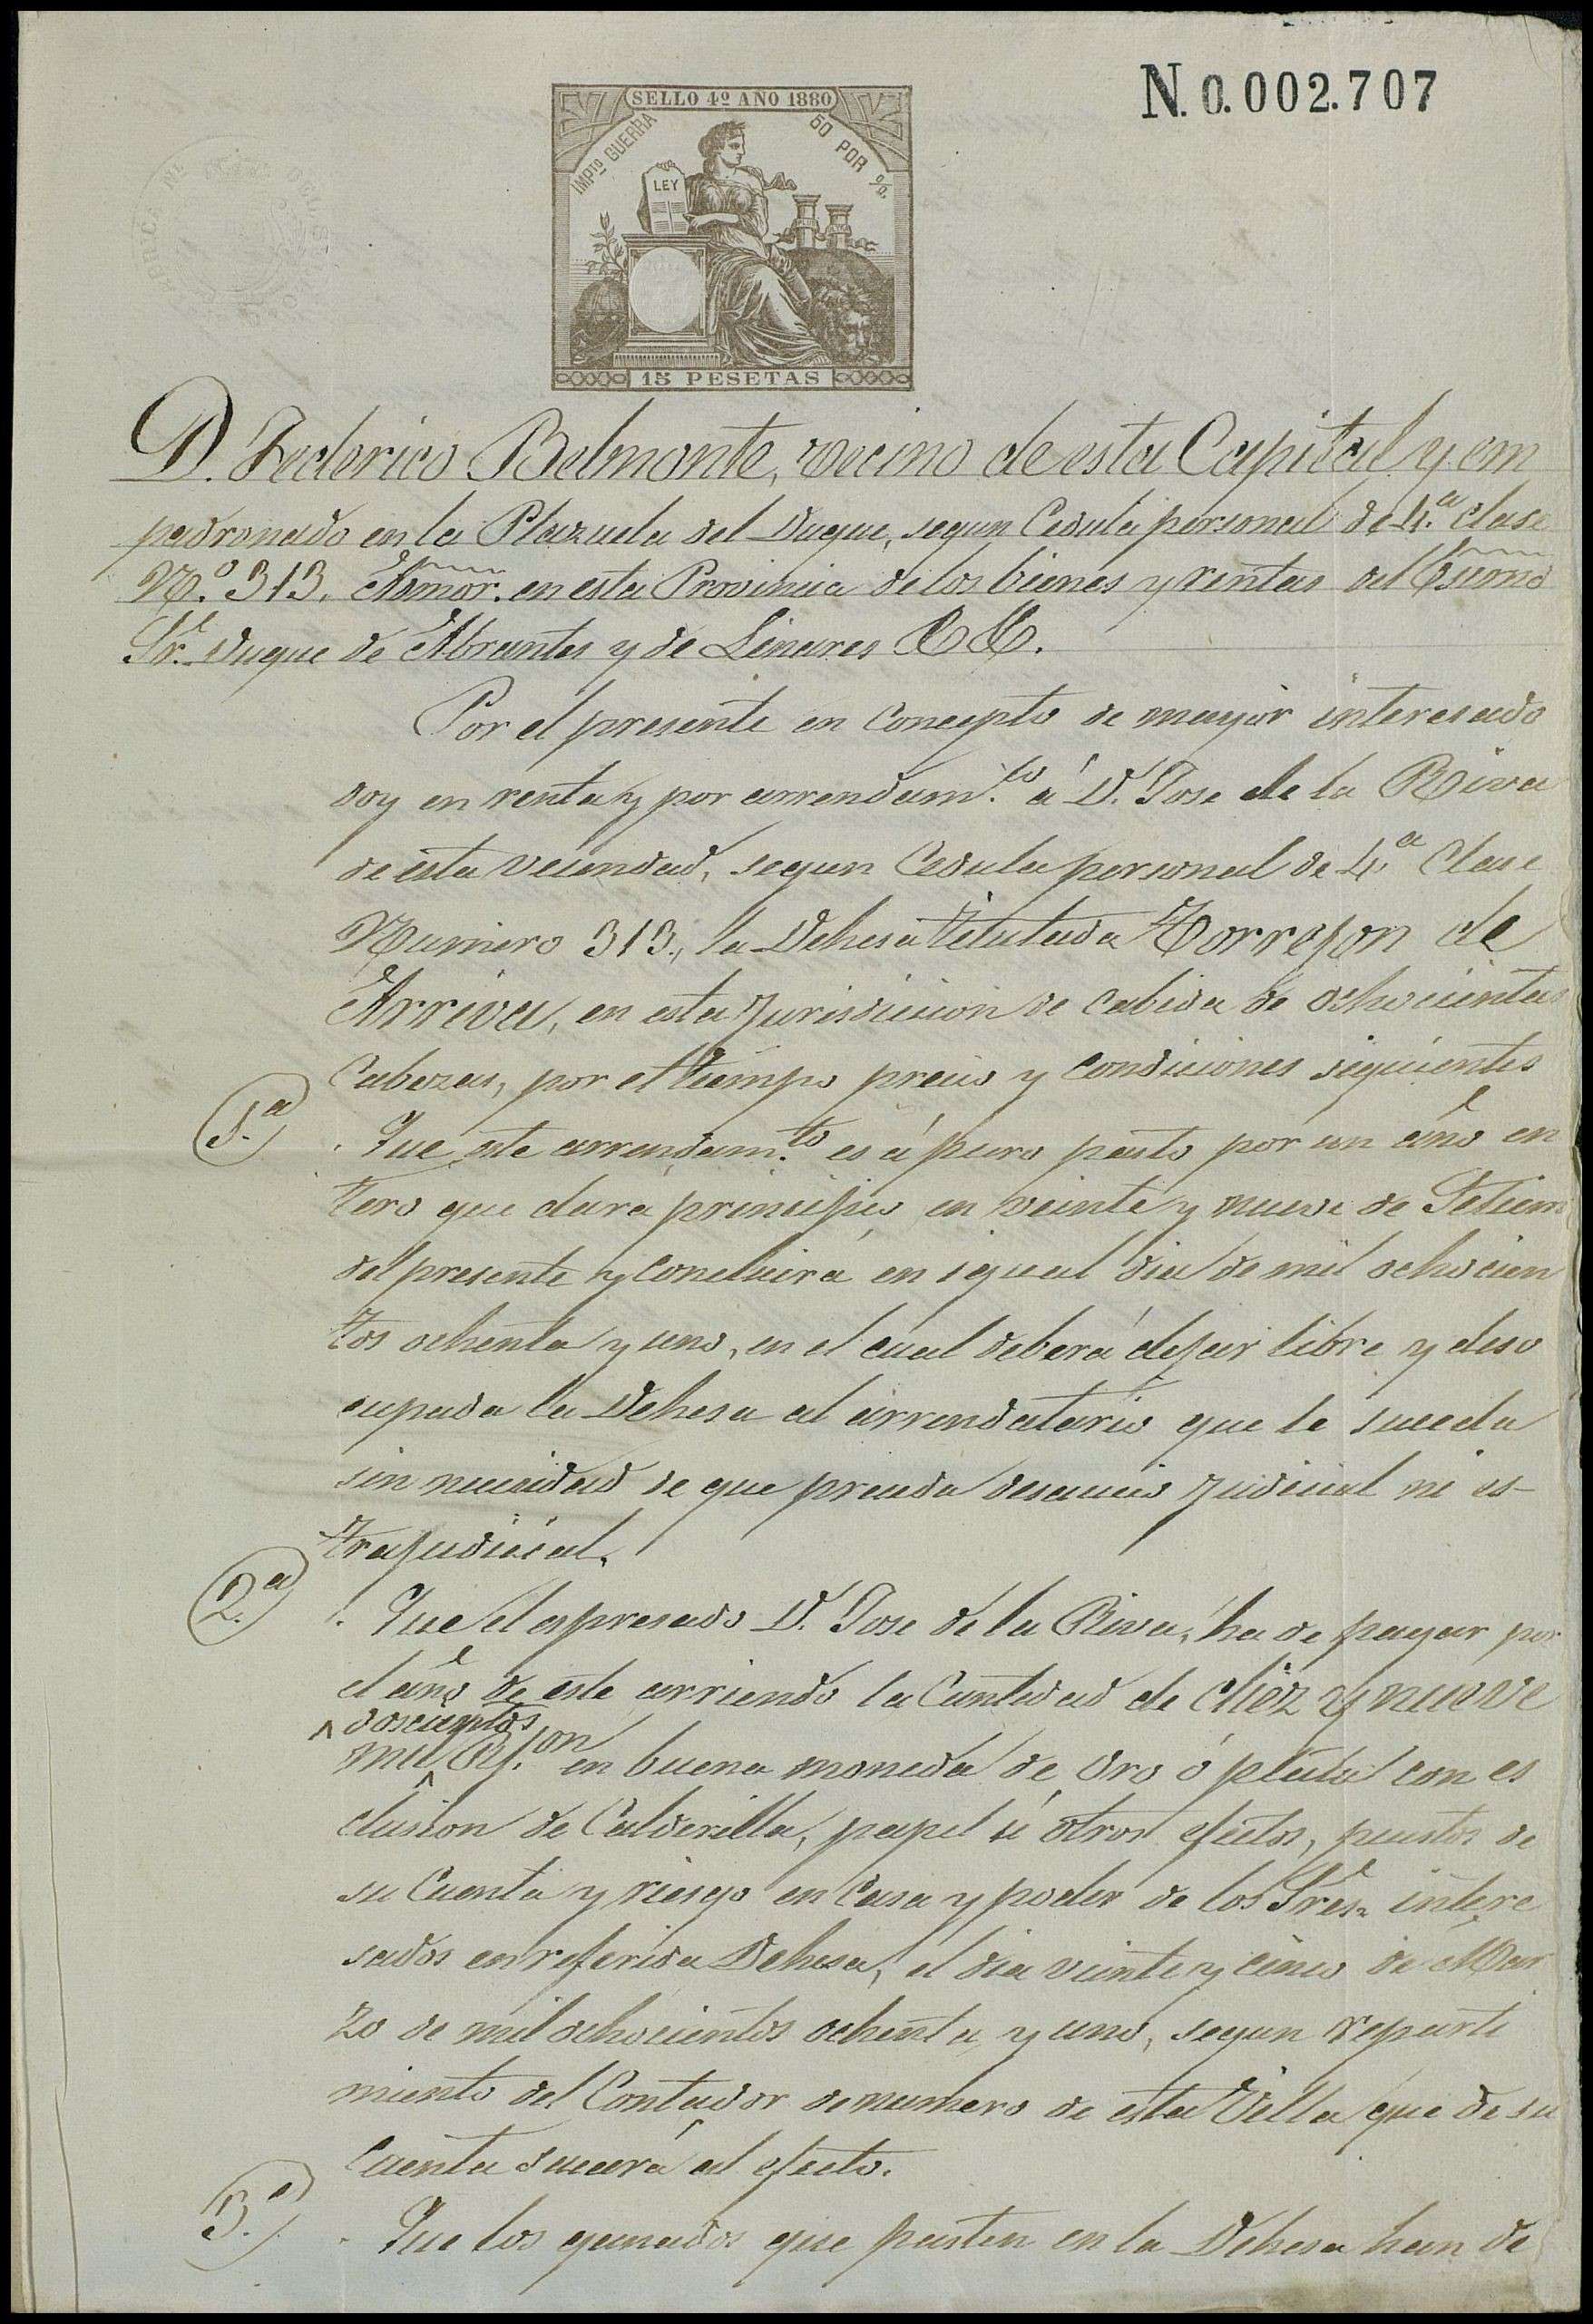 N. 0.002.707
SELLO 4º AÑO 1880
IMPto GUERRA 50 POR %
LEY
15 PESETAS
D. Federico Belmonte, vecino de esta Capital y em
padronado en la Plazuela del Duque, segun Cedula personal de 4.ª clase
N.º 313, Admor. en esta Provincia de los bienes y rentas del Escmo
Sr. Duque de Abrantes y de Linares &&.
Por el presente en concepto de mayor interesado
doy en renta y por arrendam.to á D. Jose de la Riva
de esta vecindad, segun Cedula personal de 4.ª Clase
Numero 313., la Dehesa titulada Torrejon de
Arriva, en esta Jurisdiccion de cabida de ochocientas
Cabezas, por el tiempo precio y condiciones siguientes
1.ª
Que este arrendam.to es á puro pasto por un año en
tero que dara principio en veinte y nueve de Setiem
del presente y concluira en igual dia de mil ochocien
tos ochenta y uno, en el cual deberá dejar libre y deso
cupada la Dehesa al arrendatario que le suceda
sin necesidad de que preceda desaucio judicial ni es-
trajudicial.
2.ª
Que el espresado D. Jose de la Riva, ha de pagar por
el año de este arriendo la Cantidad de diez y nueve
doscientos
mil en buena moneda de oro ó plata con es
clusion de Calderilla, papel ú otros efectos, puestos de
su Cuenta y riesgo en Casa y poder de los Sres. intere
sados en referida Dehesa, el dia veinte y cinco de Mar
zo de mil ochocientos ochenta y uno, segun reparti
miento del Contador de numero de esta Villa que de su
cuenta sacará al efecto.
3.ª
Que los ganados que pasten en la Dehesa han de